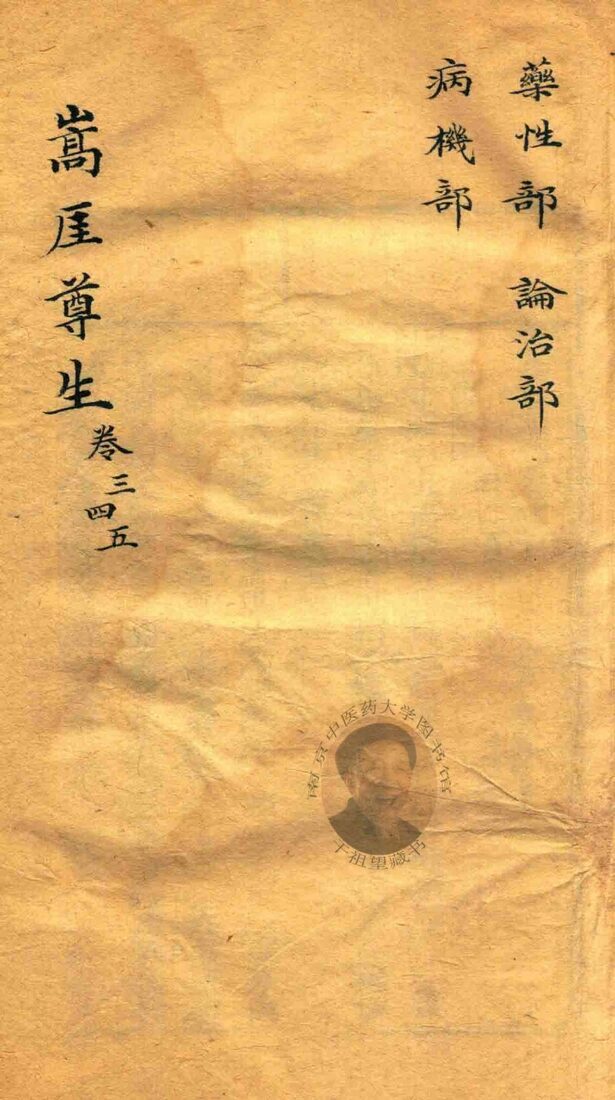 藥性部 論治部
病機部
嵩厓尊生 卷三四五
南京中医药大学图书馆
干祖望藏书